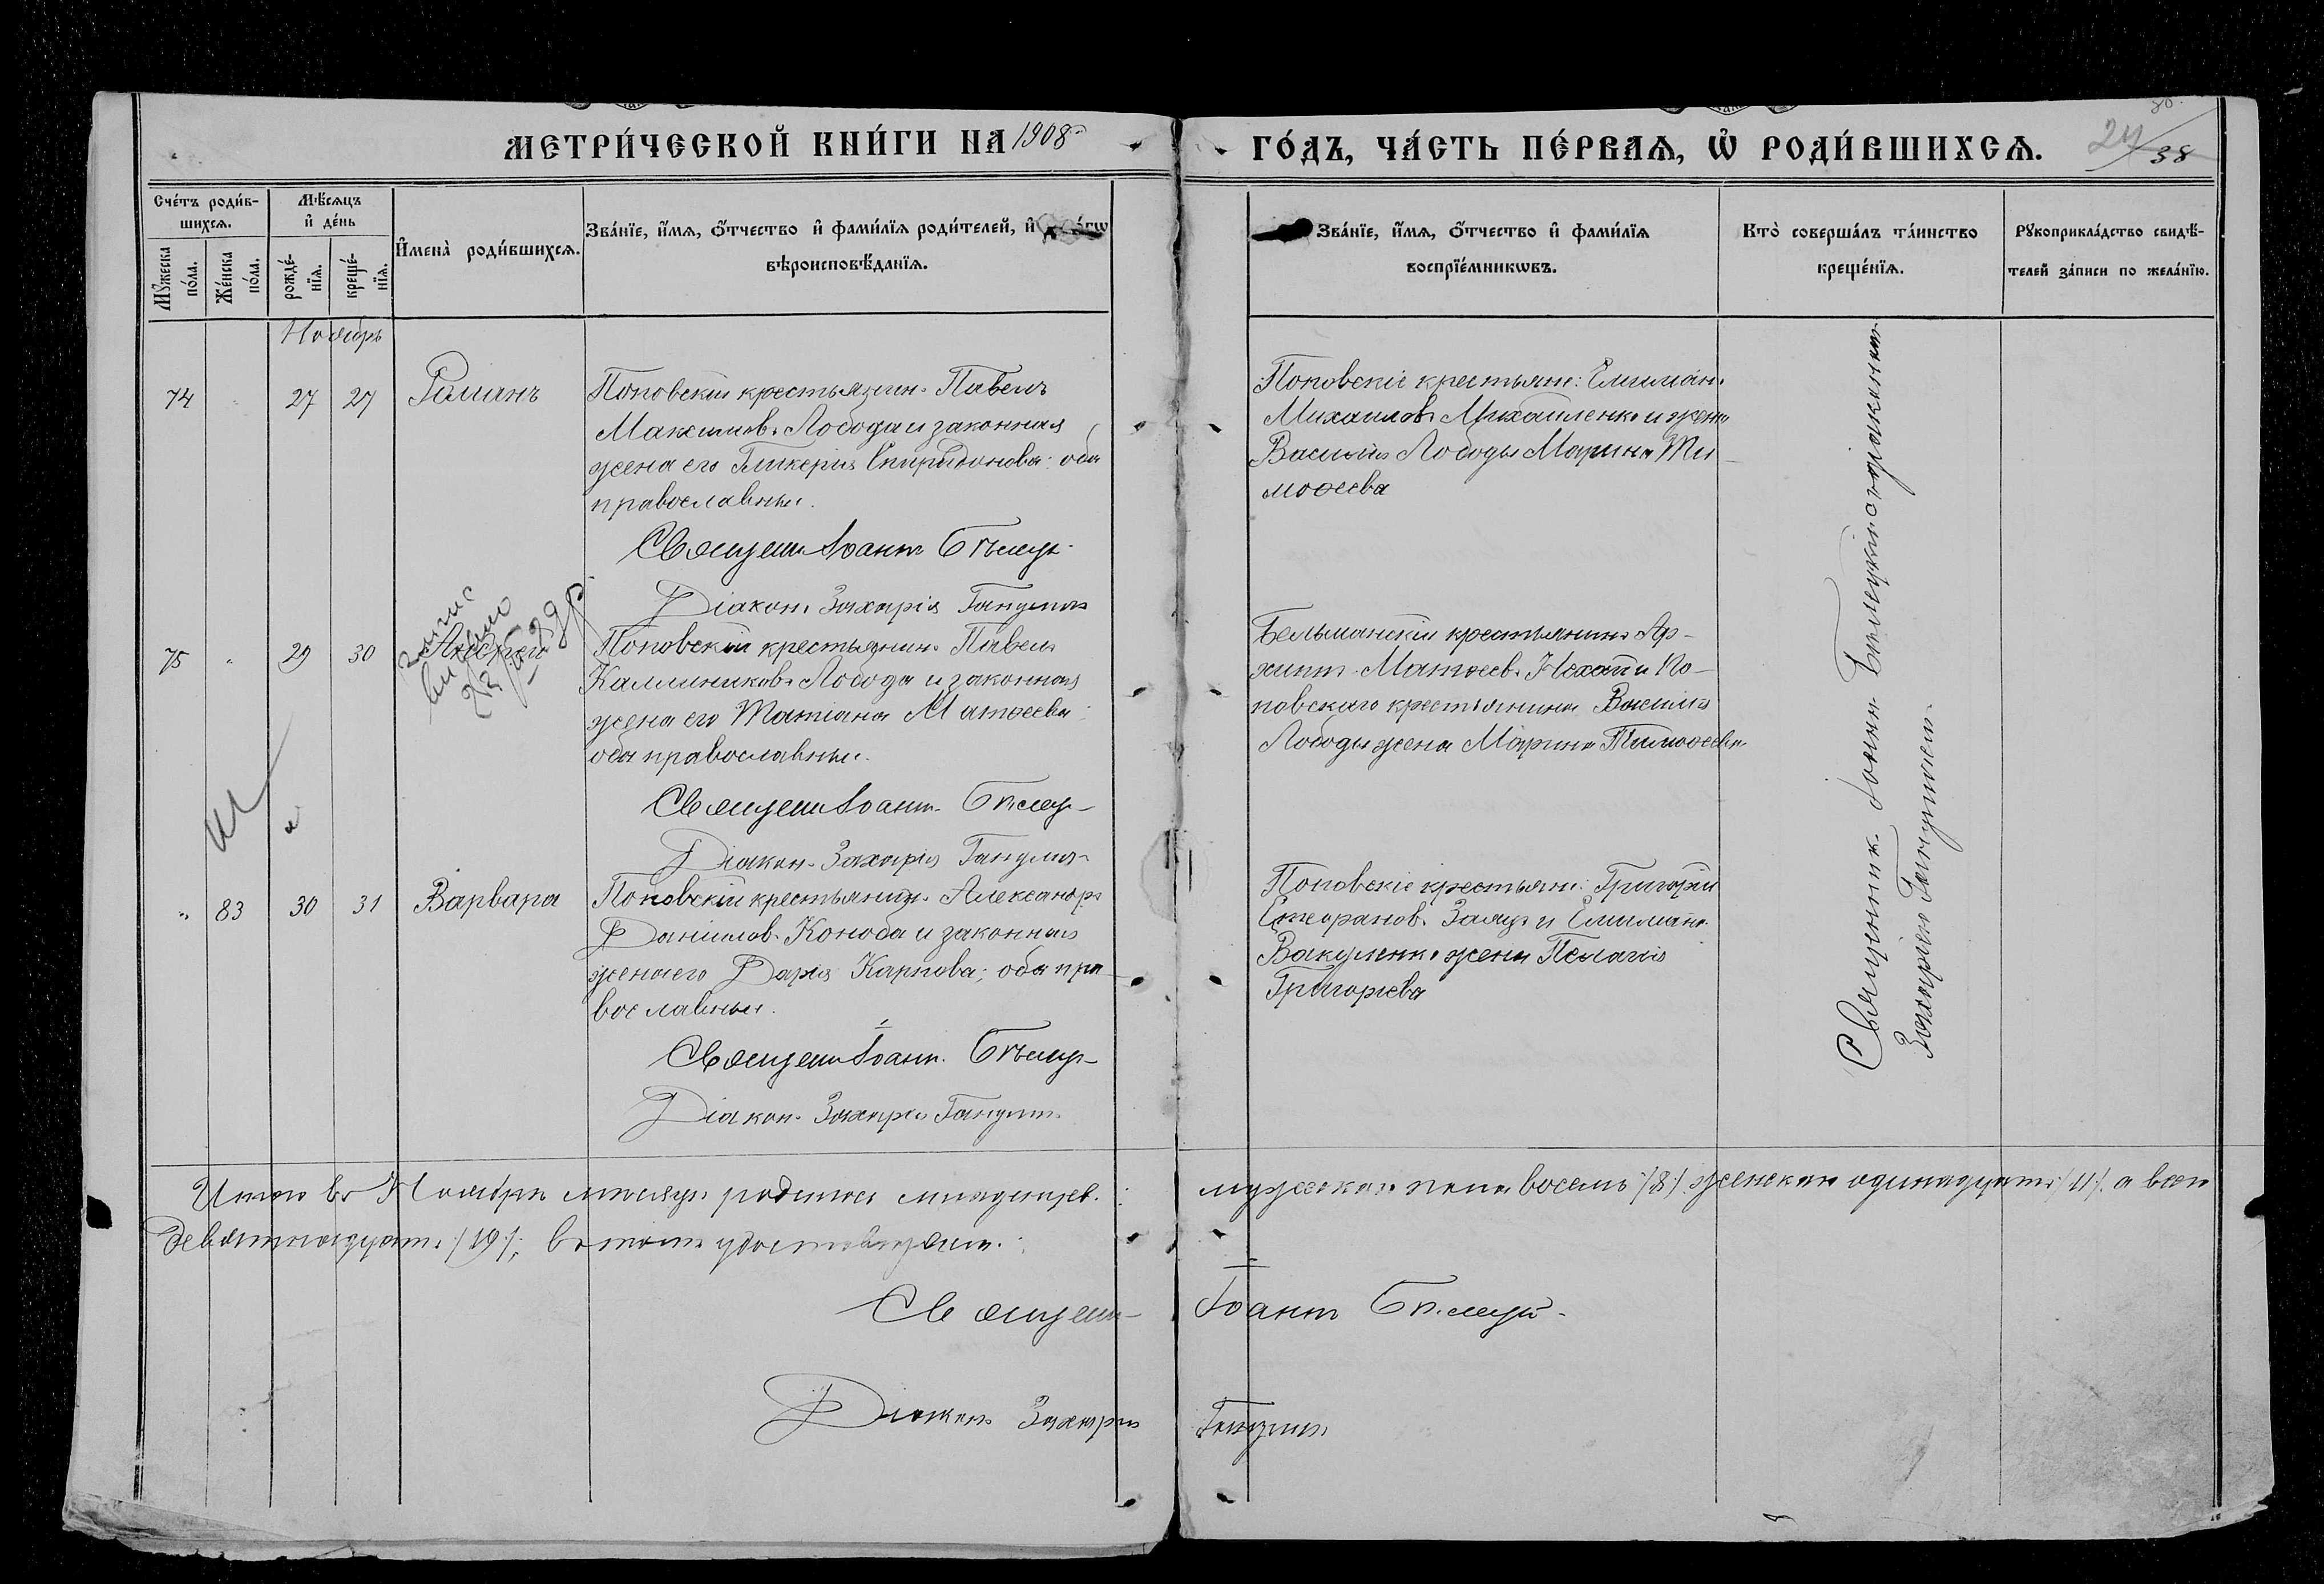 МЕТРИ́ЧЕСКОЙ КНИ́ГИ НА 1908 г.
ГО́ДЪ, ЧА́СТЬ ПЕ́РВАѦ, Ѡ РОДИ́ВШИХСѦ.
38
Сче́тъ роди́в-
шихсѧ.
Мꙋ́жеска по́ла.
Же́нска по́ла.
Мѣ́сѧцъ
и҆ де́нь
рожде́-
нїѧ.
креще́-
нїѧ.
И҆мена̀ роди́вшихсѧ.
Зва́нїе, и҆́мѧ, ѻ҆́тчество и҆ фами́лїѧ роди́телей, и҆
вѣроисповѣ́данїѧ.
Зва́нїе, и҆́мѧ, ѻ҆́тчество и҆ фами́лїѧ
воспрїе́мникѡвъ.
Кто̀ соверша́лъ та́инство
креще́нїѧ.
Рꙋкоприкла́дство свидѣ́-
телей за́писи по жела́нїю.
Ноябрь
74 27 27 Романъ
Поповскій крестьянин. Павелъ
Максимовъ Лобода и законная
жена его Гликерія Спиридонова; оба
православные.
Священ. Іоаннъ Бѣлец.
Діаконъ Захарія Ганущакъ
Поповскіе крестьяне: Емиліанъ
Михаиловъ Михайленко и жена
Василія Лободы Марина Ти-
моѳеева
75 „ 29 30 Андрей
Поповскій крестьянинъ Павелъ
Каллиниковъ Лобода и законная
жена его Татіана Матѳеева;
оба православные.
Священ. Іоанн. Бѣлец.
Діакон. Захарія
Бельманскій крестьянинъ Ар-
хипъ Матѳеевъ Нехай и По-
повскаго крестьянина Василія
Лободы жена Марина Тимоѳеева
„ 83 30 31 Варвара
Поповскій крестьянинъ Александръ
Даніиловъ Коноба и законная
жена его Дарія Карпова; оба пра-
вославные.
Священ. Іоанн. Бѣлец.
Діакон. Захарія
Поповскіе крестьяне: Григорій
Стефановъ Заяцъ и Емиліана
Вакуленко жена Пелагія
Григорьева
Священник. Іоанн съ діакономъ
Захаріею
Итого въ Ноябрѣ мѣсяцѣ родилось младенцевъ:
мужескаго пола восемь /8/. женскаго одинадцать /11/. а всего
девятнадцать /19/; въ томъ удостовѣряемъ:
Священ. Іоаннъ Бѣлец.
Діаконъ Захарія